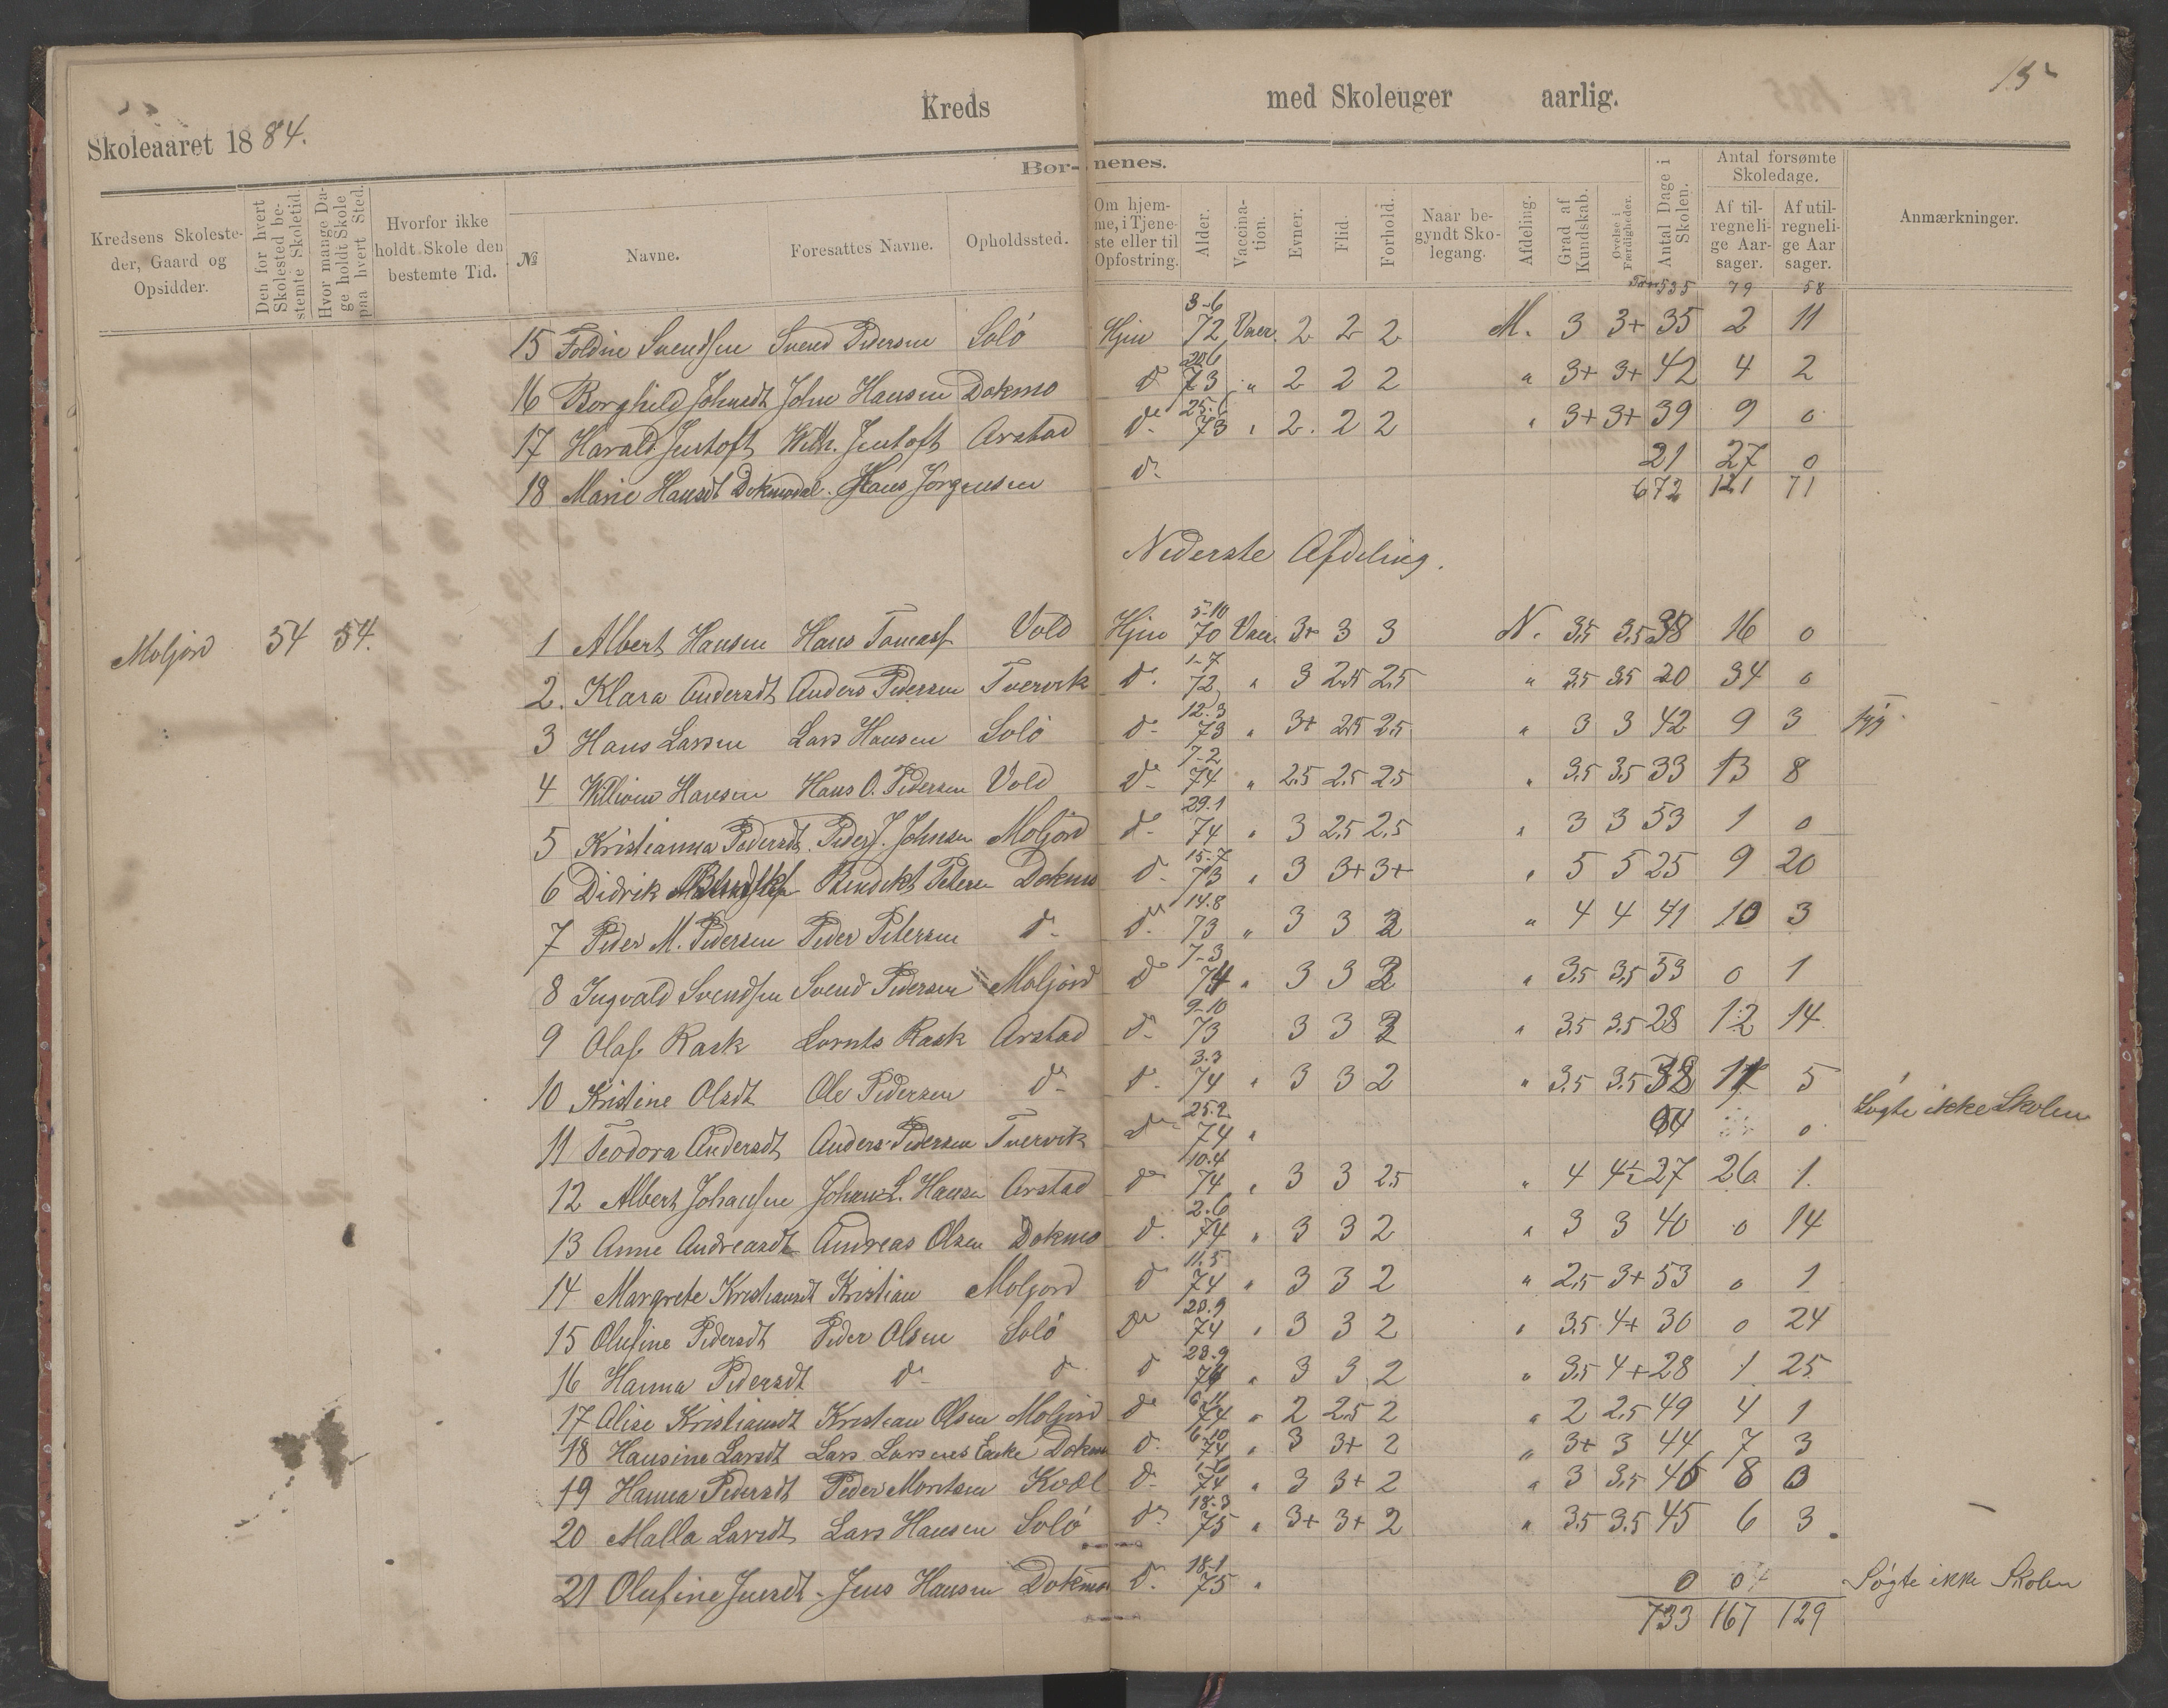 15
Skoleaaret 1884.
Kreds med Skoleuger aarlig.
Kredsens Skolesteder, Gaard og Opsidder.
Den for hvert Skolested bestemte Skoletid.
Hvor mange Dage holdt Skole paa hvert Sted.
Hvorfor ikke holdt Skole den bestemte Tid.
Børnenes.
№
Navne.
Foresattes Navne.
Opholdssted.
Om hjemme, i Tjeneste eller til Opfostring.
Alder.
Vaccination.
Evner.
Flid.
Forhold.
Naar begyndt Skolegang.
Afdeling.
Grad af Kundskab.
Øvelse i Færdigheder.
Antal Dage i Skolen.
Antal forsømte Skoledage.
Af tilregnelige Aarsager.
Af utilregnelige Aarsager.
Anmærkninger.
535 79 58
15 Foldine Svendsen Svend Pedersen Solö Hjem 3-6 72 Vacc. 2 2 2 M. 3 3+ 35 2 11
16 Borghild Johnsdt John Hansen Dokmo d° 20.6 73 " 2 2 2 " 3+ 3+ 42 4 2
17 Harald Jentoft Wilh. Jentoft Arstad d° 25.6 73 " 2. 2 2 " 3+ 3+ 39 9 0
18 Marie Hansdt Dokmodal. Hans Jörgensen d° 21 27 0
672 121 71
Nederste Afdeling.
Moljord 54 54.
1 Albert Hansen Hans Tomass. Vold Hjem 5-10 70 Vacc. 3+ 3 3 N. 3,5 3,5 38 16 0
2. Klara Andersdt Anders Pedersen Tvervik d° 1-7 72 " 3 2,5 2,5 " 3,5 3,5 20 34 0
3 Hans Larsen Lars Hansen Solö d° 12.3 73 " 3+ 2,5 2,5 " 3 3 42 9 3 syg.
4 William Hansen Hans O. Pedersen Vold d° 7-2 74 " 2,5 2,5 2,5 " 3,5 3,5 33 13 8
5 Kristianna Pedersdt. Peder J. Johnsen Moljord d° 29.1 74 " 3 2,5 2,5 " 3 3 53 1 0
6 Didrik Bendikt Petersen Dokmo d° 15-7 73 " 3 3+ 3+ " 5 5 25 9 20
7 Peder M. Pedersen Peder Petersen d° d° 14.8 73 " 3 3 2 " 4 4 41 10 3
8 Ingvald Svendsen Svend Pedersen Moljord d° 7-3 74 " 3 3 2 " 3,5 3,5 53 0 1
9 Olaf Rask Lornts Rask Arstad d° 9-10 73 3 3 2 " 3,5 3,5 28 12 14
10 Kristine Olsdt Ole Pedersen d° d° 3.3 74 " 3 3 2 " 3,5 3,5 38 11 5
11 Teodora Andersdt Anders Pedersen Tvervik d° 25.2 74 " 0 Søgte ikke Skolen
12 Albert Johansen Johan L. Hansen Arstad d° 10.4 74 " 3 3 2,5 " 4 4+ 27 26 1
13 Anne Andreasdt Andreas Olsen Dokmo d° 2.6 74 " 3 3 2 " 3 3 40 0 14
14 Margrete Kristiansdt Kristian Moljord d° 11.5 74 " 3 3 2 " 2,5 3+ 53 0 1
15 Olufine Pedersdt Peder Olsen Solö d° 28.9 74 " 3 3 2 " 3,5 4+ 30 0 24
16 Hanna Pedersdt d° d° d° 28.9 74 " 3 3 2 " 3,5 4+ 28 1 25
17 Alise Kristiansdt Kristian Olsen Moljord d° 6.11 74 " 2 2,5 2 " 2 2,5 49 4 1
18 Hansine Larsdt Lars Larsens Enke Dokmo d° 6-10 74 " 3 3+ 2 " 3+ 3 44 7 3
19 Hanna Pedersdt Peder Mortsen Kvæl d° 74 " 3 3+ 2 " 3 3,5 46 8 0
20 Malla Larsdt Lars Hansen Solö d° 18.3 75 " 3+ 3+ 2 " 3,5 3,5 45 6 3
21 Olufine Jensdt Jens Hansen Dokmo d° 18-1 75 " 0 Søgte ikke Skolen
733 167 129